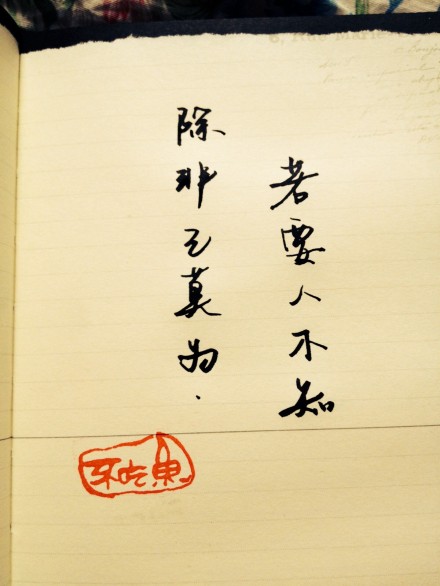 若要人不知
除非己莫为.
不吃鱼